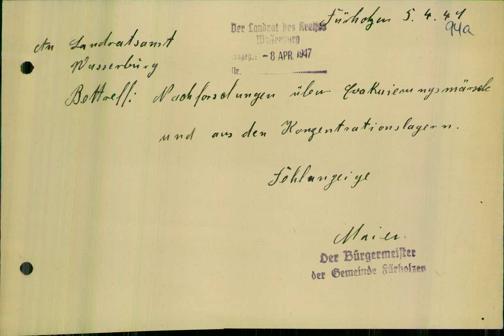 Fürholzen 5.4.47
94a
Der Landrat des Kreises
Wasserburg
Eingeg.: -8 APR. 1947
Nr.
An Landratsamt
Wasserburg
Bettreff: Nachforschungen über Evakuierungsmärsche
und aus den Konzentrationslagern.
Fehlanzeige
Maier.
Der Bürgermeister
der Gemeinde Fürholzen